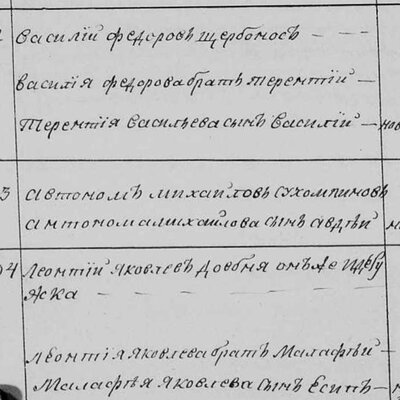 2 Василій Федоровъ Щербоносъ
Василія Федорова братъ Терентій
Терентія Васильева сынъ Василій нов
3 Автономъ Михайловъ Сухомлиновъ
Антонома Михайлова сынъ Авдѣй
4 Леонтій Яковлевъ Довбня онъ же
жка
Леонтія Яковлева братъ Малафѣй
Малафѣя Яковлева сынъ Есипъ